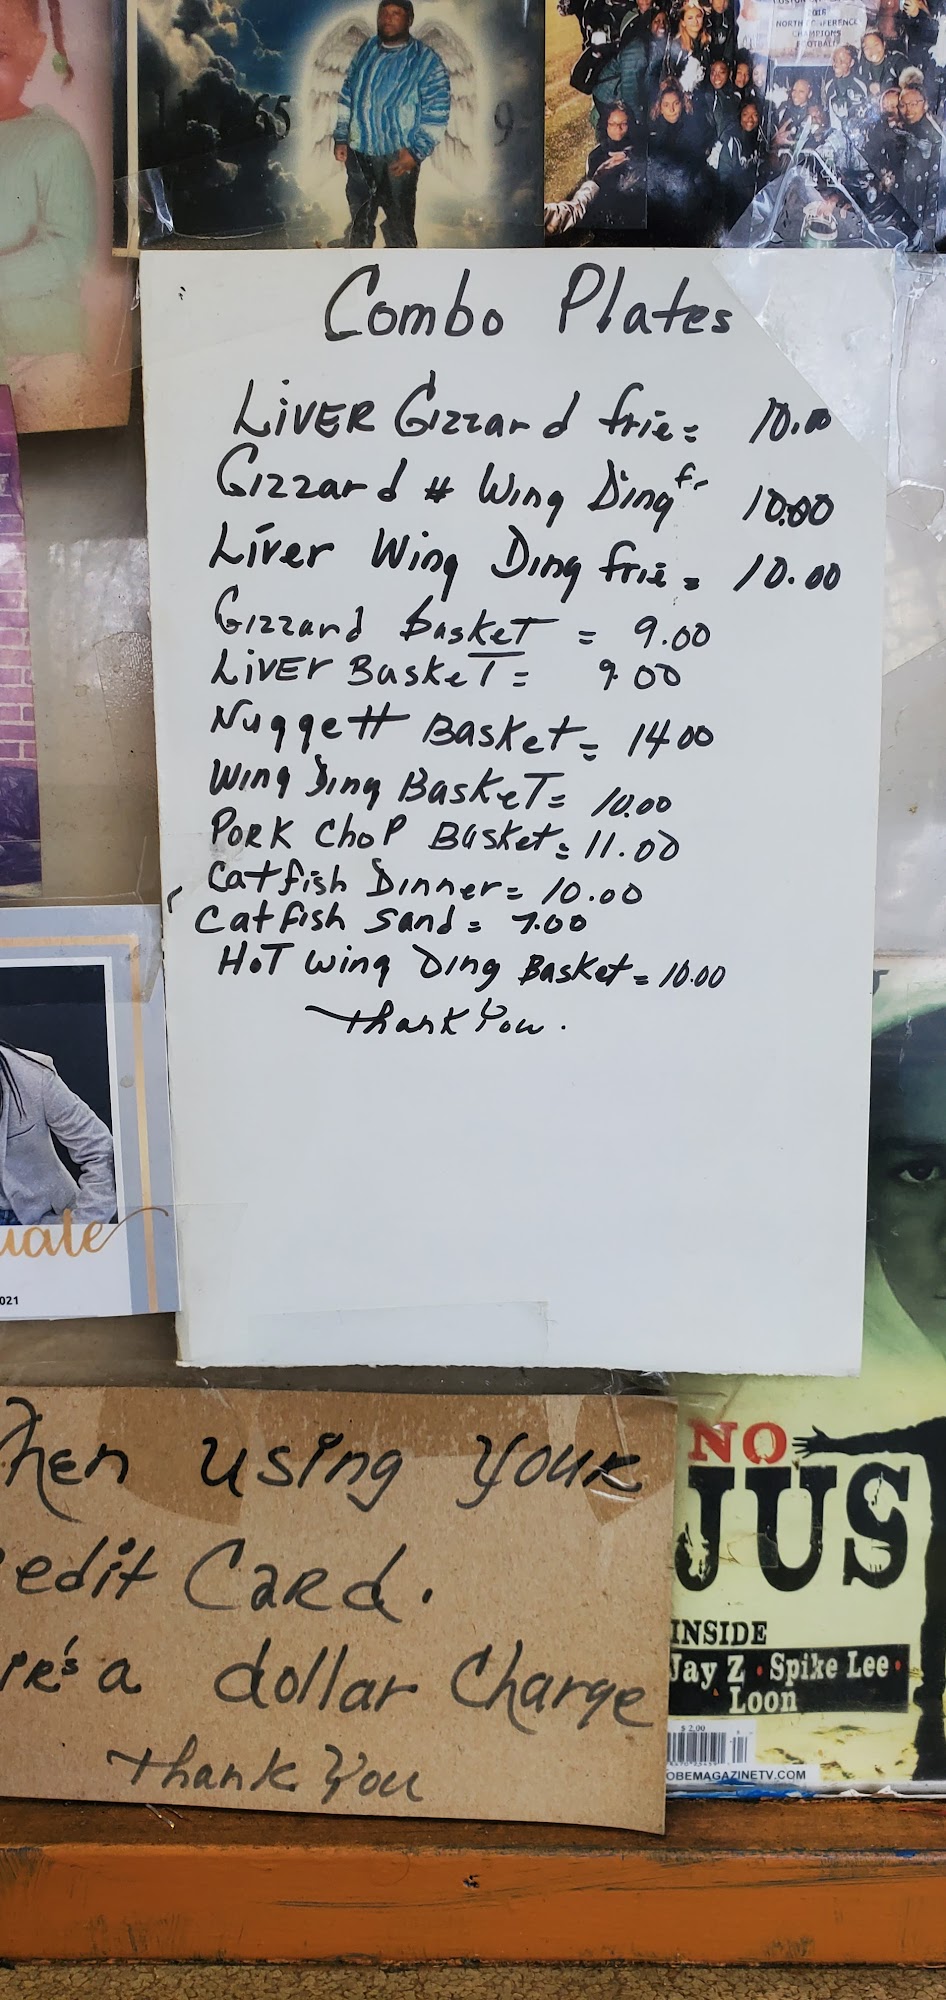 NORTH CONFERENCE
CHAMPIONS
FOOTBALL
65 9
Combo Plates
LIVER Gizzard frie = 10.00
Gizzard # Wing Ding fr 10.00
Liver Wing Ding frie = 10.00
Gizzard basket = 9.00
LIVER Basket = 9.00
Nuggett Basket = 14 00
Wing Ding Basket = 10.00
PORK ChoP Basket = 11.00
Catfish Dinner = 10.00
Catfish Sand = 7.00
HoT Wing Ding Basket = 10.00
Thank You.
uate
021
hen using your
edit Card.
re's a dollar Charge
Thank You
NO
JUS
INSIDE
Jay Z • Spike Lee •
Loon
$2.00
OBEMAGAZINETV.COM